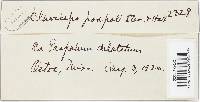 Claviceps paspali Stev. & Hall 2329
On Paspalum dilatatum
Miss. Aug. 3, 1922.